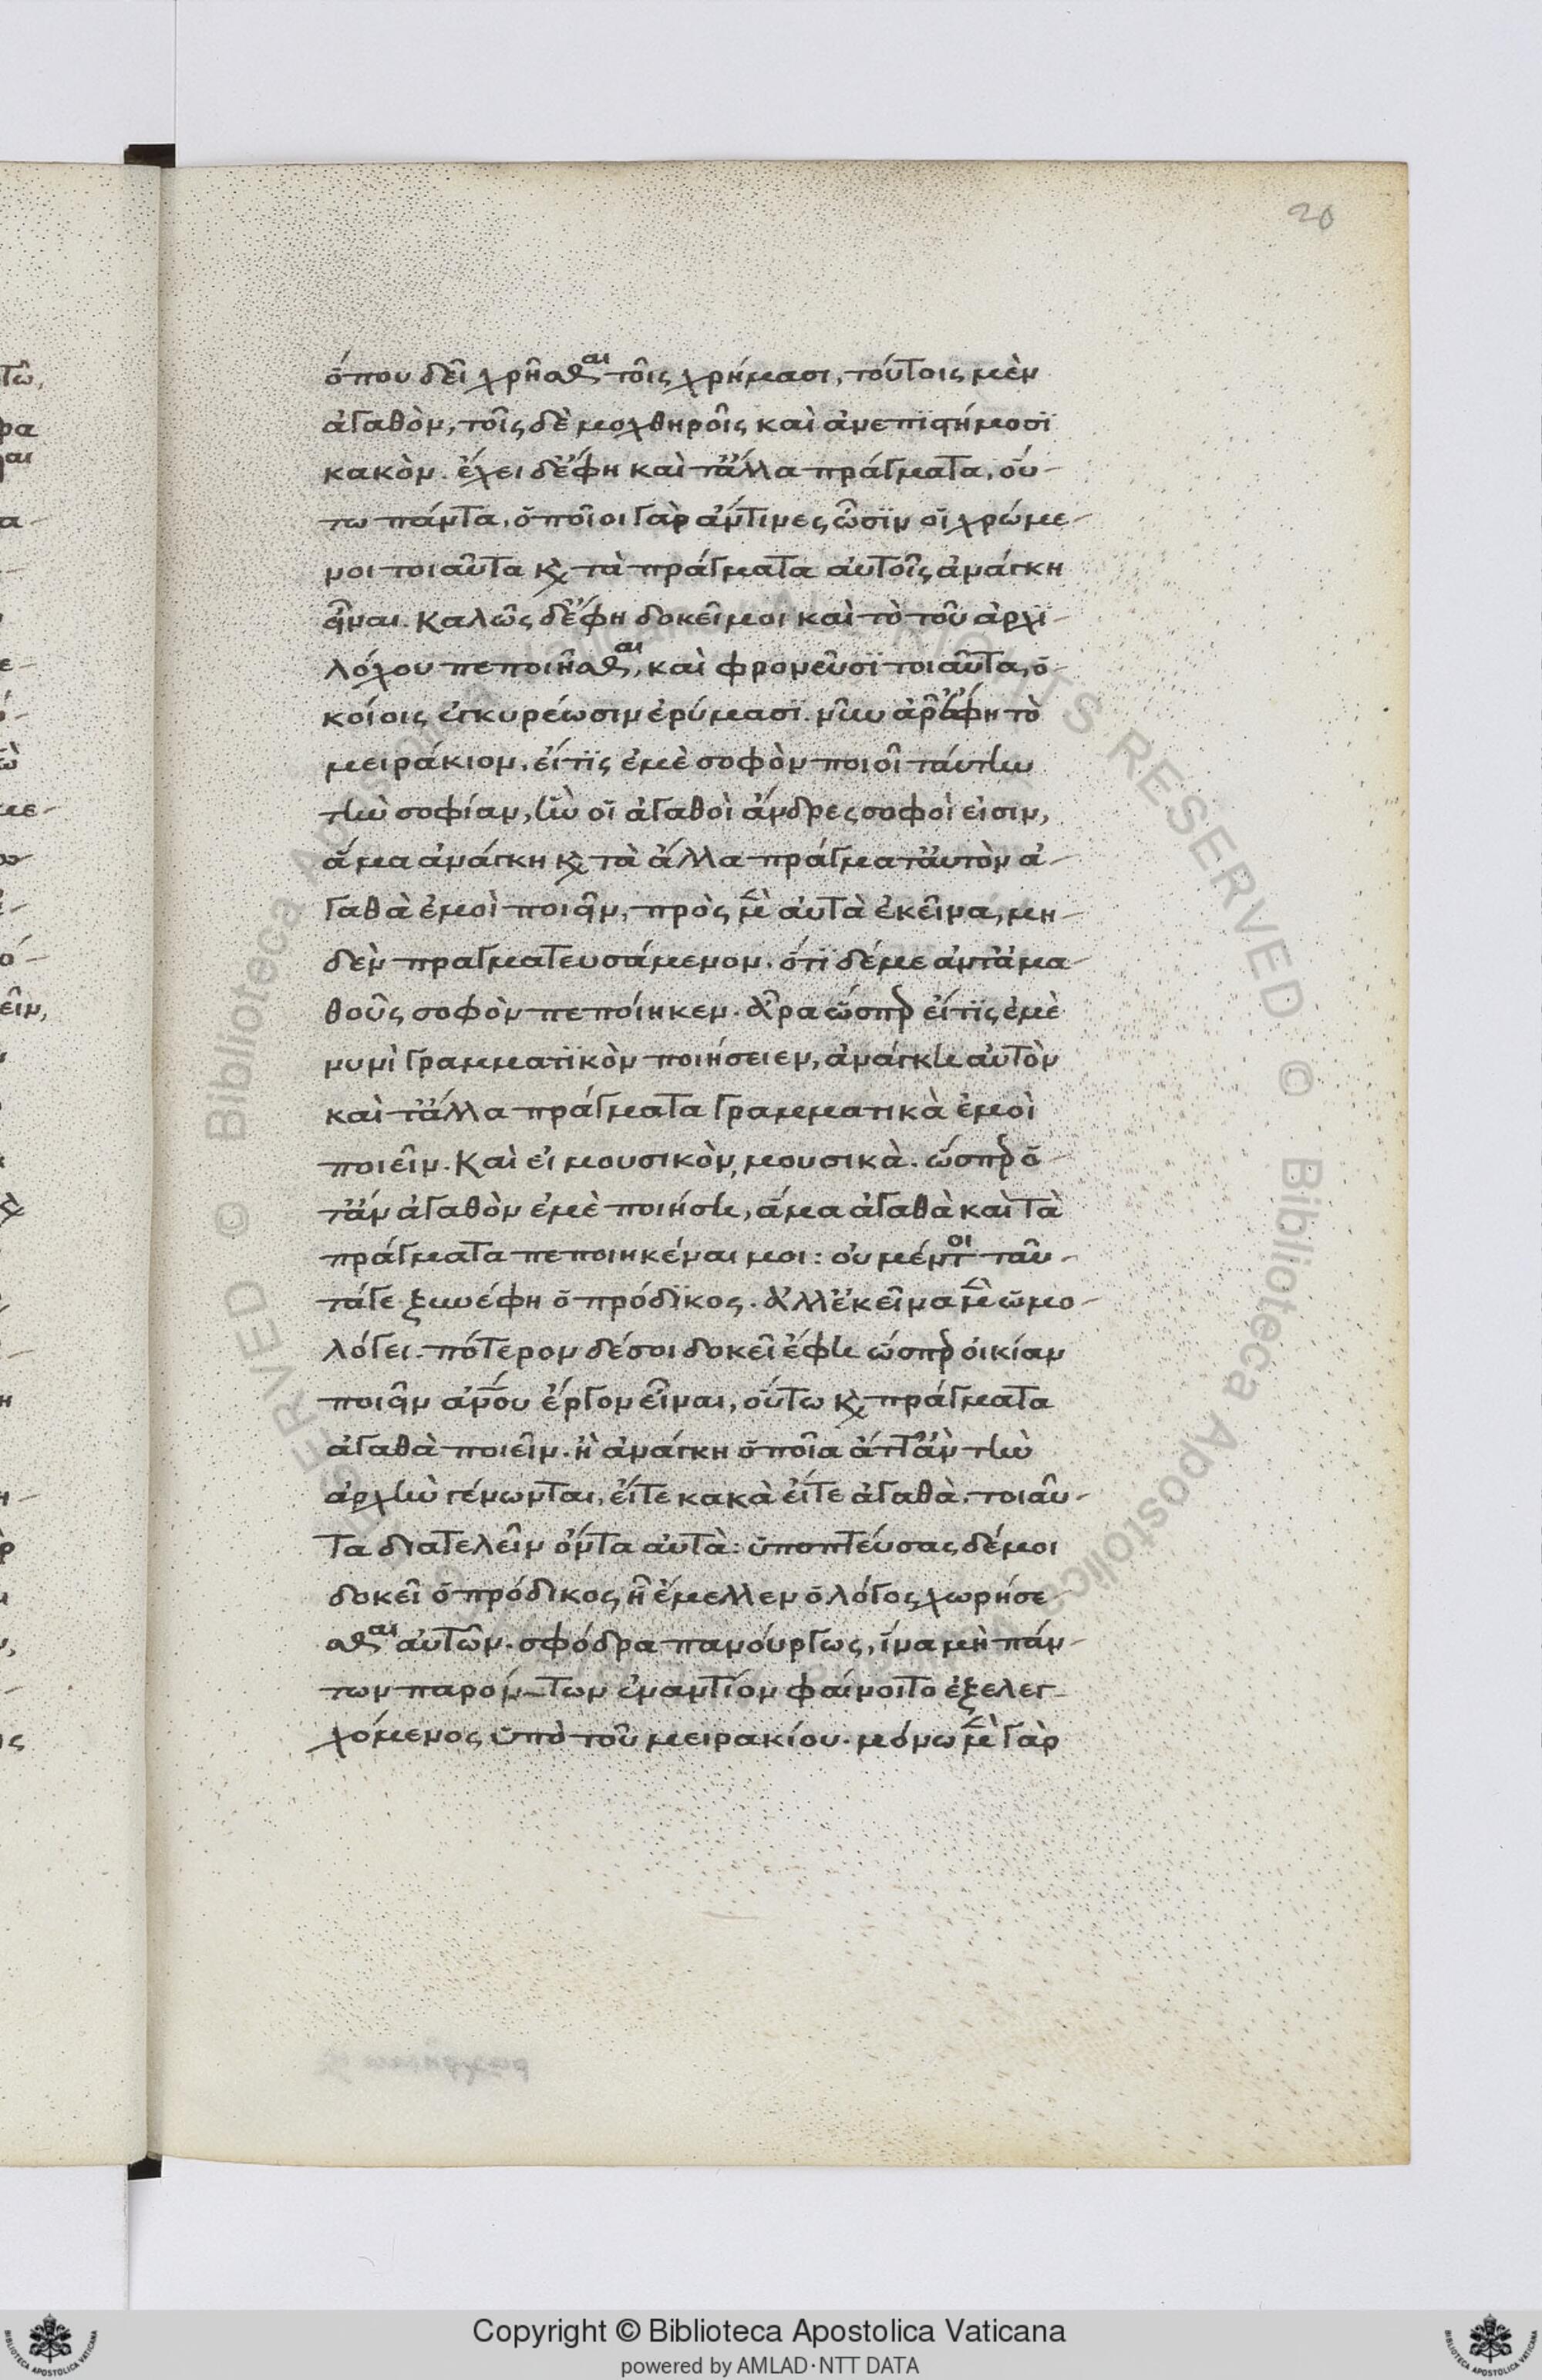 20
ὅπου δεῖ χρῆσθαι τοῖς χρήμασι, τούτοις μὲν
ἀγαθὸν, τοῖς δὲ μοχθηροῖς καὶ ἀνεπϊστήμοσϊ
κακὸν. ἔχει δ' ἔφη καὶ τἄλλα πράγματα, οὕ-
τω πάντα, ὁποῖοι γὰρ ἄντινες ὦσϊν οἱ χρώμε-
νοι τοιαῦτα κὶ τὰ πράγματα αὐτοῖς ἀνάγκη
εἶναι. Καλῶς δ' ἔφη δοκεῖ μοι καὶ τὸ τοῦ ἀρχϊ-
λόχου πεποιῆσθαι, καὶ φρονεῦσϊ τοιαῦτα, ὁ-
κοίοις ἐγκυρέωσιν ἐρύμασϊ. νῦν ἆρ' ἔφη τὸ
μειράκιον. εἴ τϊς ἐμὲ σοφὸν ποιοῖ ταύτην
τὴν σοφίαν, ἣν οἱ ἀγαθοὶ ἄνδρες σοφοὶ εἰσιν,
ἅμα ἀνάγκη κὶ τὰ ἄλλα πράγματ' αὐτὸν ἀ-
γαθὰ ἐμοὶ ποιεῖν, πρὸς μὲν αὐτὰ ἐκεῖνα, μη-
δὲν πραγματευσάμενον. ὅτϊ δέ με ἀντ' ἀμα-
θοῦς σοφὸν πεποίηκεν. ἆρα ὥσπερ εἴ τϊς ἐμὲ
νυνὶ γραμματϊκὸν ποιήσειεν, ἀνάγκη αὐτὸν
καὶ τἄλλα πράγματα γραμματικὰ ἐμοὶ
ποιεῖν. Καὶ εἰ μουσικὸν, μουσικὰ. ὥσπερ ὅ-
τἂν ἀγαθὸν ἐμὲ ποιήση, ἅμα ἀγαθὰ καὶ τὰ
πράγματα πεποιηκέναι μοι: οὐ μέντοι ταῦ-
τά γε ξυνέφη ὁ πρόδϊκος. ἀλλ' ἐκεῖνα μὲν ὡμο-
λόγει. πότερον δέ σοι δοκεῖ ἔφη ὥσπερ οἰκίαν
ποιεῖν ἀνθρώπου ἔργον εἶναι, οὕτω κὶ πράγματα
ἀγαθὰ ποιεῖν. ἢ ἀνάγκη ὁποῖα ἄττ' ἂν τὴν
ἀρχὴν γένωνται, εἴτε κακὰ εἴτε ἀγαθὰ. τοιαῦ-
τα διατελεῖν ὄντα αὐτὰ: ὑποπτεύσας δέ μοι
δοκεῖ ὁ πρόδικος, ἧ ἔμελλεν ὁ λόγος χωρήσε-
σθαι αὐτῶν. σφόδρα πανούργως, ἵνα μὴ πάν-
των παρόν-των ἐναντίον φαίνοιτο ἐξελεγ-
χόμενος ὑπὸ τοῦ μειρακίου. μόνω μὲν γὰρ
Copyright © Biblioteca Apostolica Vaticana
powered by AMLAD·NTT DATA